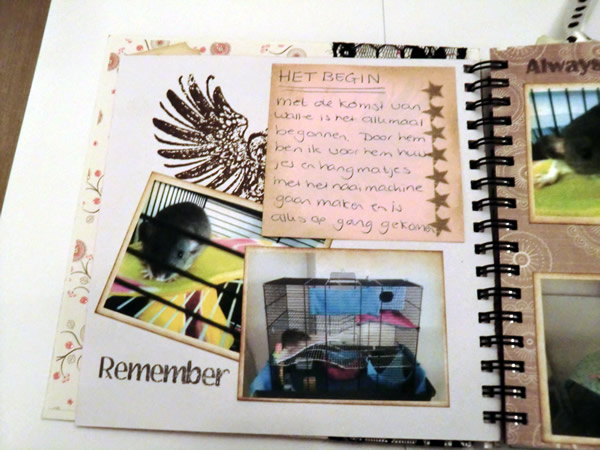 HET BEGIN
Met de komst van
Wallie is het allemaal
begonnen. Door hem
ben ik voor hem huis
jes en hangmatjes
met het naaimachine
gaan maken en is
alles op gang gekomen
Remember
Always